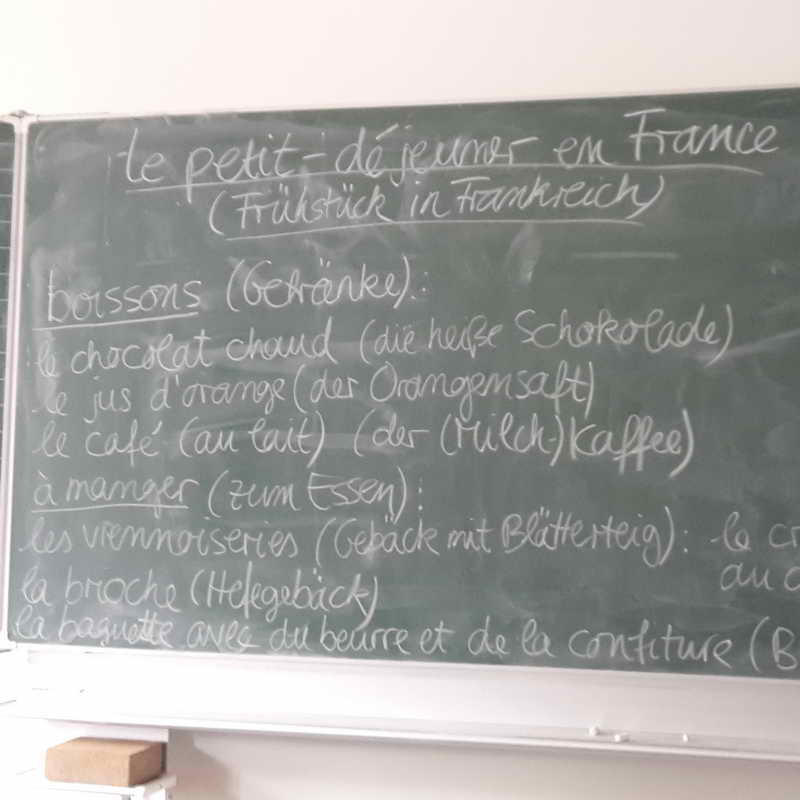 le petit-déjeuner en France
(Frühstück in Frankreich)
boissons (Getränke):
le chocolat chaud (die heiße Schokolade)
le jus d'orange (der Orangensaft)
le café (au lait) (der (Milch-)Kaffee)
à manger (zum Essen):
les viennoiseries (Gebäck mit Blätterteig): le cr
au c
la brioche (Hefegebäck)
la baguette avec du beurre et de la confiture (B